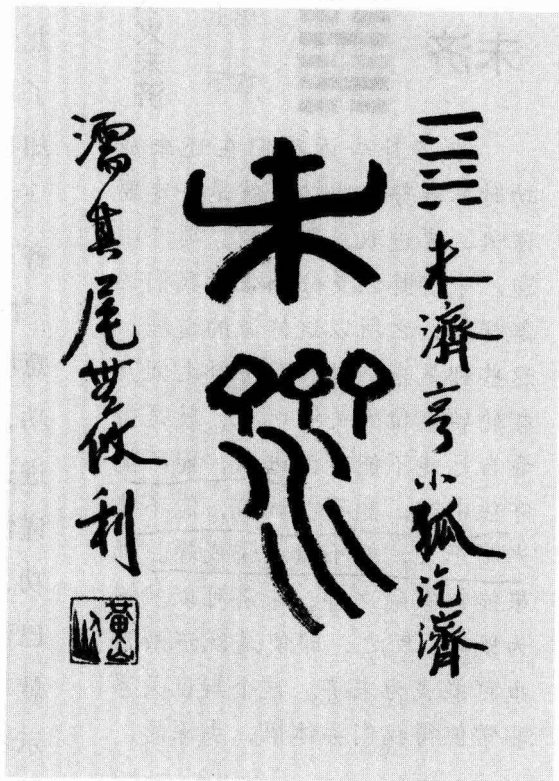 ䷿未濟亨小狐汔濟
未濟
濡其尾無攸利
黄山